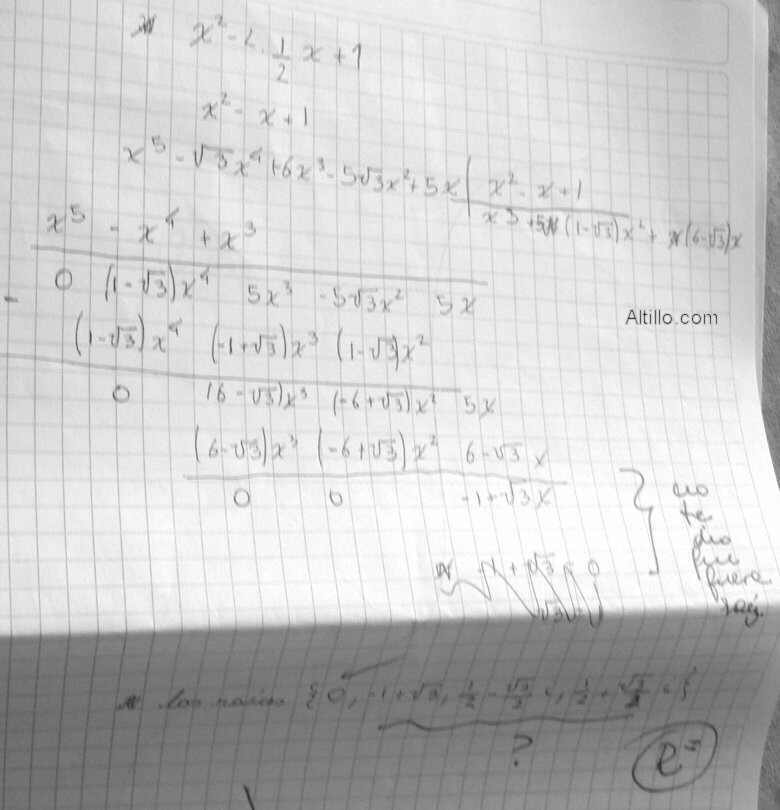 x² - 2 · 1/2 x + 1
x² - x + 1
x⁵ - √3 x⁴ + 6x³ - 5√3 x² + 5x | x² - x + 1
x³ + (1-√3)x² + (6-√3)x
x⁵ - x⁴ + x³
Altillo.com
0 (1-√3)x⁴ 5x³ -5√3x² 5x
- (1-√3)x⁴ (-1+√3)x³ (1-√3)x²
0 (6-√3)x³ (-6+√3)x² 5x
(6-√3)x³ (-6+√3)x² 6-√3 x
0 0 -1+√3x
no
te
dio
que
fuera
+√3 = 0
las raíces {0, -1+√3, 1/2 - √3/2 i, 1/2 + √3/2 i}
?
R=